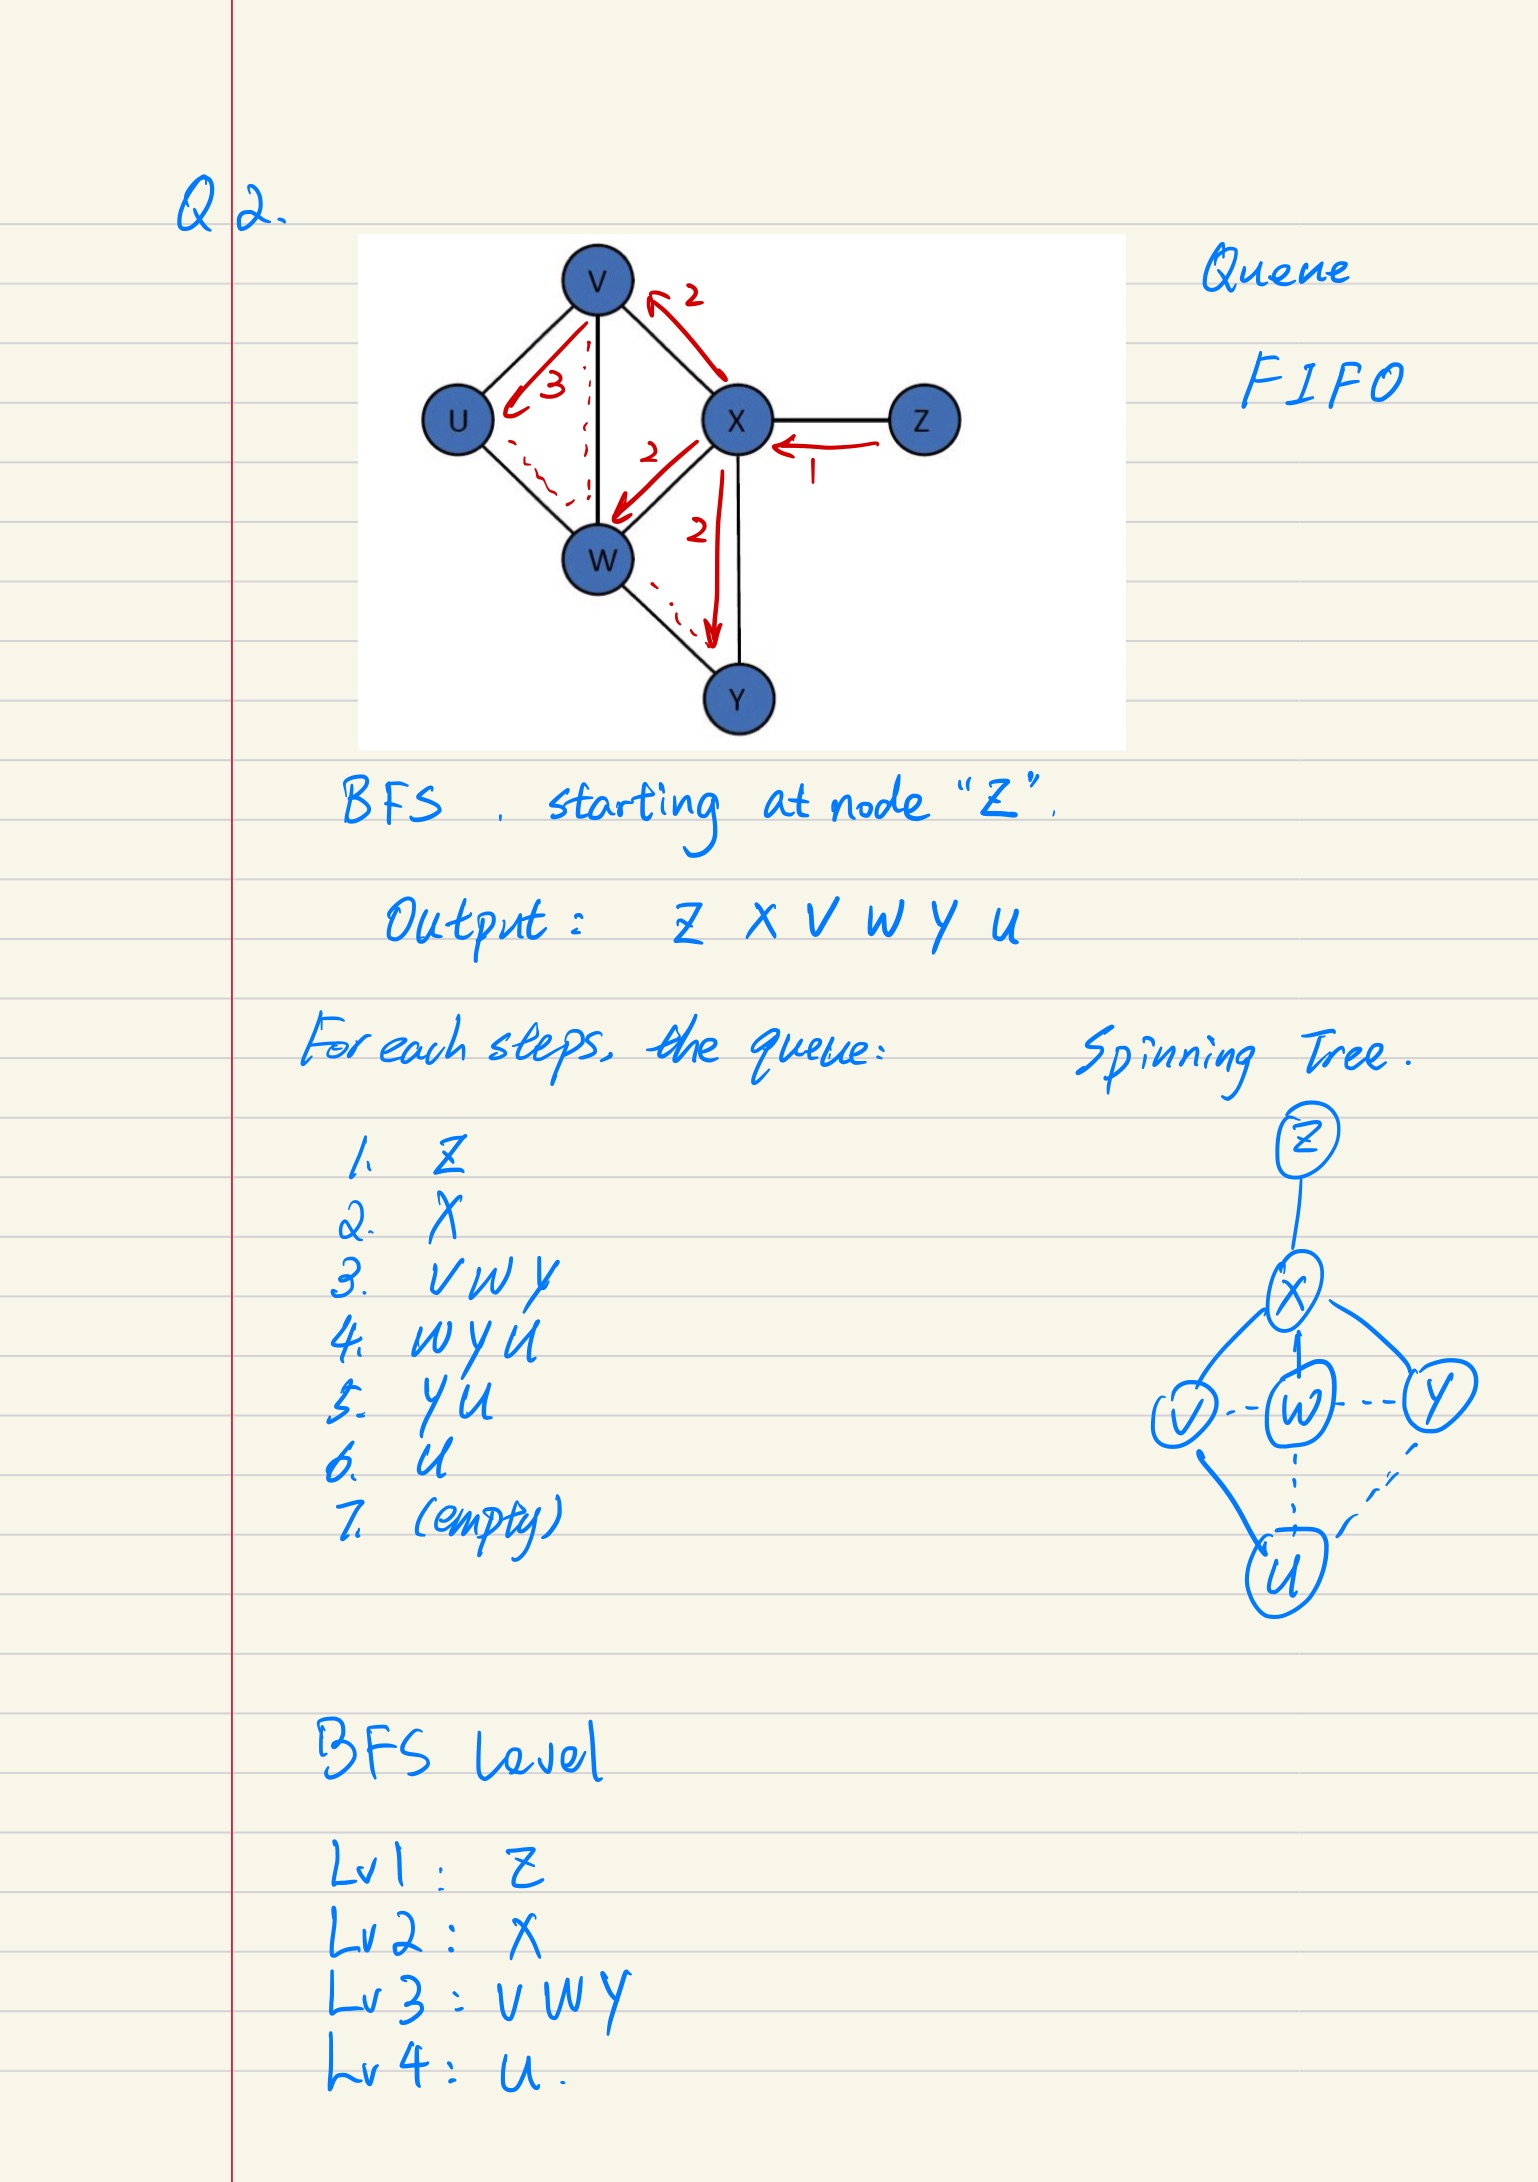 Q2.
Queue
FIFO
V
2
3
U
X
Z
2
1
2
W
Y
BFS . starting at node "Z".
Output: Z X V W Y U
For each steps, the queue:
1. Z
2. X
3. V W Y
4. W Y U
5. Y U
6. U
7. (empty)
Spinning Tree.
Z
X
V W Y
U
BFS Level
Lv1: Z
Lv2: X
Lv3: V W Y
Lv4: U.